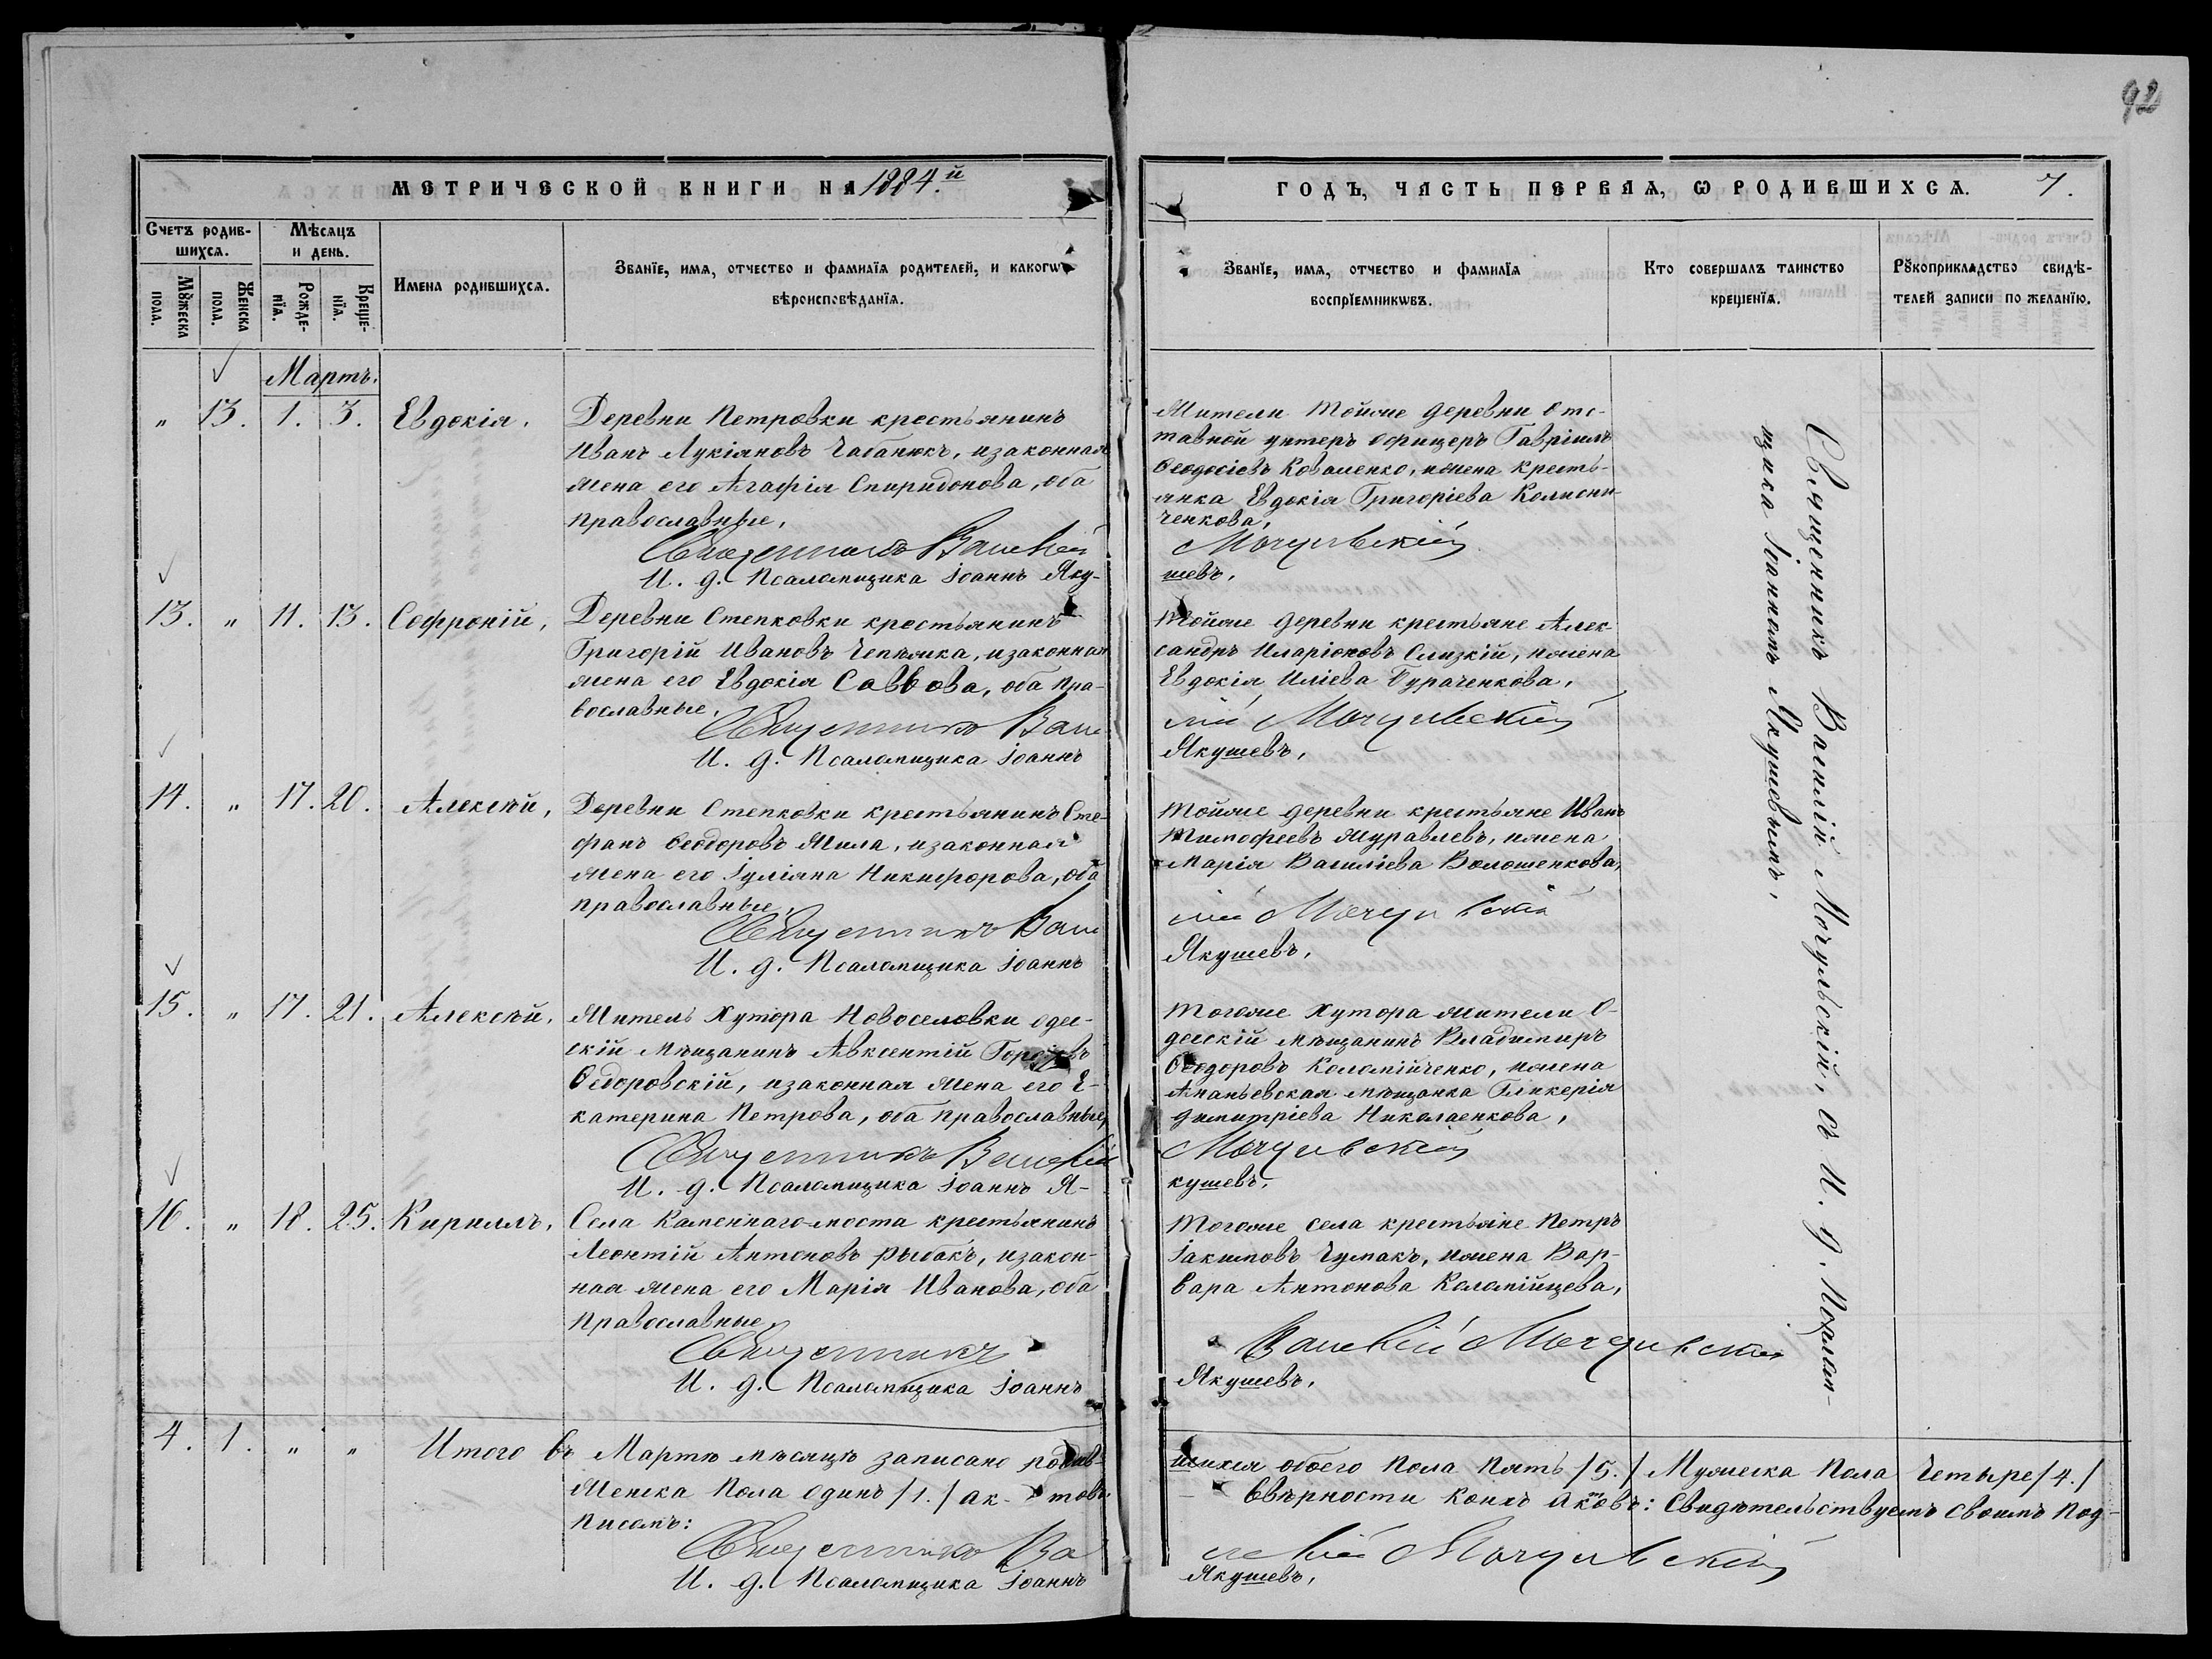 92
МЕТРИЧЕСКОЙ КНИГИ НА 1884.й
ГОДЪ, ЧАСТЬ ПЕРВАЯ, Ѡ РОДИВШИХСѦ. 7.
Счетъ родив-
шихсѧ.
Мꙋжеска
пола.
Женска
пола.
Мѣсяцъ
и день.
Рожде-
нїѧ.
Креще-
нїѧ.
Имена родившихсѧ.
Званїе, имѧ, отчество и фамилїѧ родителей, и какогѡ
вѣроисповѣданїѧ.
Званїе, имѧ, отчество и фамилїѧ
воспрїемникѡвъ.
Кто совершалъ таинство
крещенїѧ.
Рꙋкоприкладство свидѣ-
телей записи по желанїю.
Мартъ.
" 13. 1. 3. Евдокія,
Деревни Петровки крестьянинъ
Иванъ Лукіановъ Чабанюкъ, изаконная
жена его Агафія Спиридонова, оба
православные,
Священникъ Василій
И. д. Псаломщика Іоаннъ Яку-
Жители тойже деревни Отс-
тавной унтеръ офицеръ Гавріилъ
Ѳеодосіевъ Коваленко, ижена кресть-
янка Евдокія Григоріева
ченкова,
Мочульскій
шевъ,
13. " 11. 13. Софроній,
Деревни Степковки крестьянинъ
Григорій Ивановъ Чепѣжка, изаконная
жена его Евдокія Саввова, оба пра-
вославные,
Священникъ Васи
И. д. Псаломщика Іоаннъ
Тойже деревни крестьяне Алек-
сандръ Иларіоновъ Слизкій, ижена
Евдокія Иліева Бураченкова,
лій Мочульскій
Якушевъ,
14. " 17. 20. Алексѣй,
Деревни Степковки крестьянинъ Сте-
фанъ Ѳеодоровъ Жила, изаконная
жена его Іуліана Никифорова, оба
православные,
Священникъ Васи
И. д. Псаломщика Іоаннъ
Тойже деревни крестьяне Иванъ
Тимофеевъ Журавлевъ, ижена
Марія Василіева Волошенкова,
лій Мочульскій
Якушевъ,
15. " 17. 21. Алексѣй,
Житель Хутора Новоселовки одес-
скій мѣщанинъ Авксентій
Ѳедоровскій, изаконная жена его Е-
катерина Петрова, оба православные,
Священникъ Василій
И. д. Псаломщика Іоаннъ Я-
Тогоже Хутора жители О-
десскій мѣщанинъ Владимиръ
Ѳеодоровъ Коломійченко, ижена
Ананьевская мѣщанка Гликерія
Димитріева Николаенкова,
Мочульскій
кушевъ,
16. " 18. 25. Кириллъ,
Села Каменнаго-моста крестьянинъ
Леонтій Антоновъ Рыбакъ, изакон-
ная жена его Марія Иванова, оба
православные,
Священникъ
И. д. Псаломщика Іоаннъ
Тогоже села крестьяне Петръ
Іакимовъ Чумакъ, ижена Вар-
вара Антонова Коломійцева,
Василій Мочульскій
Якушевъ,
Священникъ Василій Мочульскій, съ И. д. Псалом-
щика Іоанномъ Якушевымъ,
4. 1. " " Итого въ Мартѣ мѣсяцѣ записано родив-
шихся обоего Пола Пять /5./ Мужеска Пола Четыре /4./
Женска Пола Одинъ /1./ ак-товъ
Ввѣрности коихъ актовъ: Свидѣтельствуемъ Своимъ Под-
писомъ:
Священникъ Ва
силій Мочульскій
И. д. Псаломщика Іоаннъ
Якушевъ,